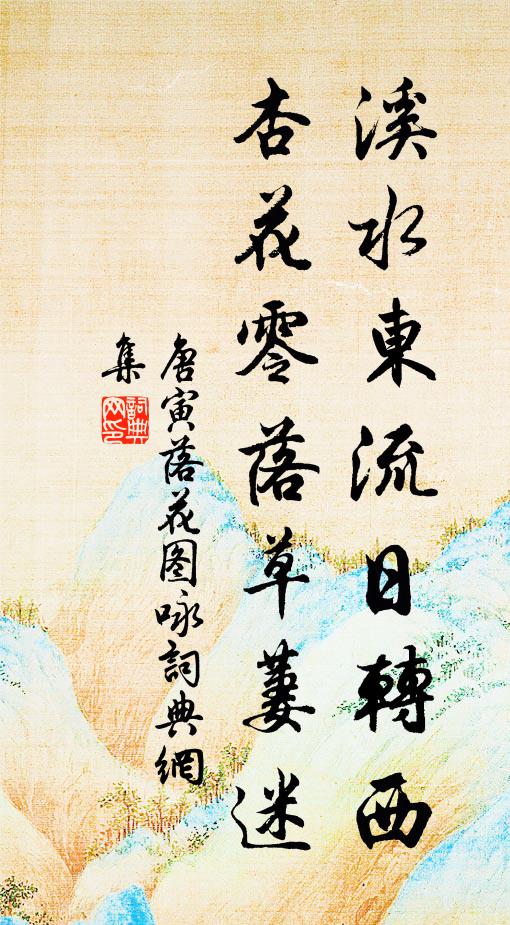 溪水東流日轉西
杏花零落草萋迷
唐寅落花图咏詞典網
集
詞典网印